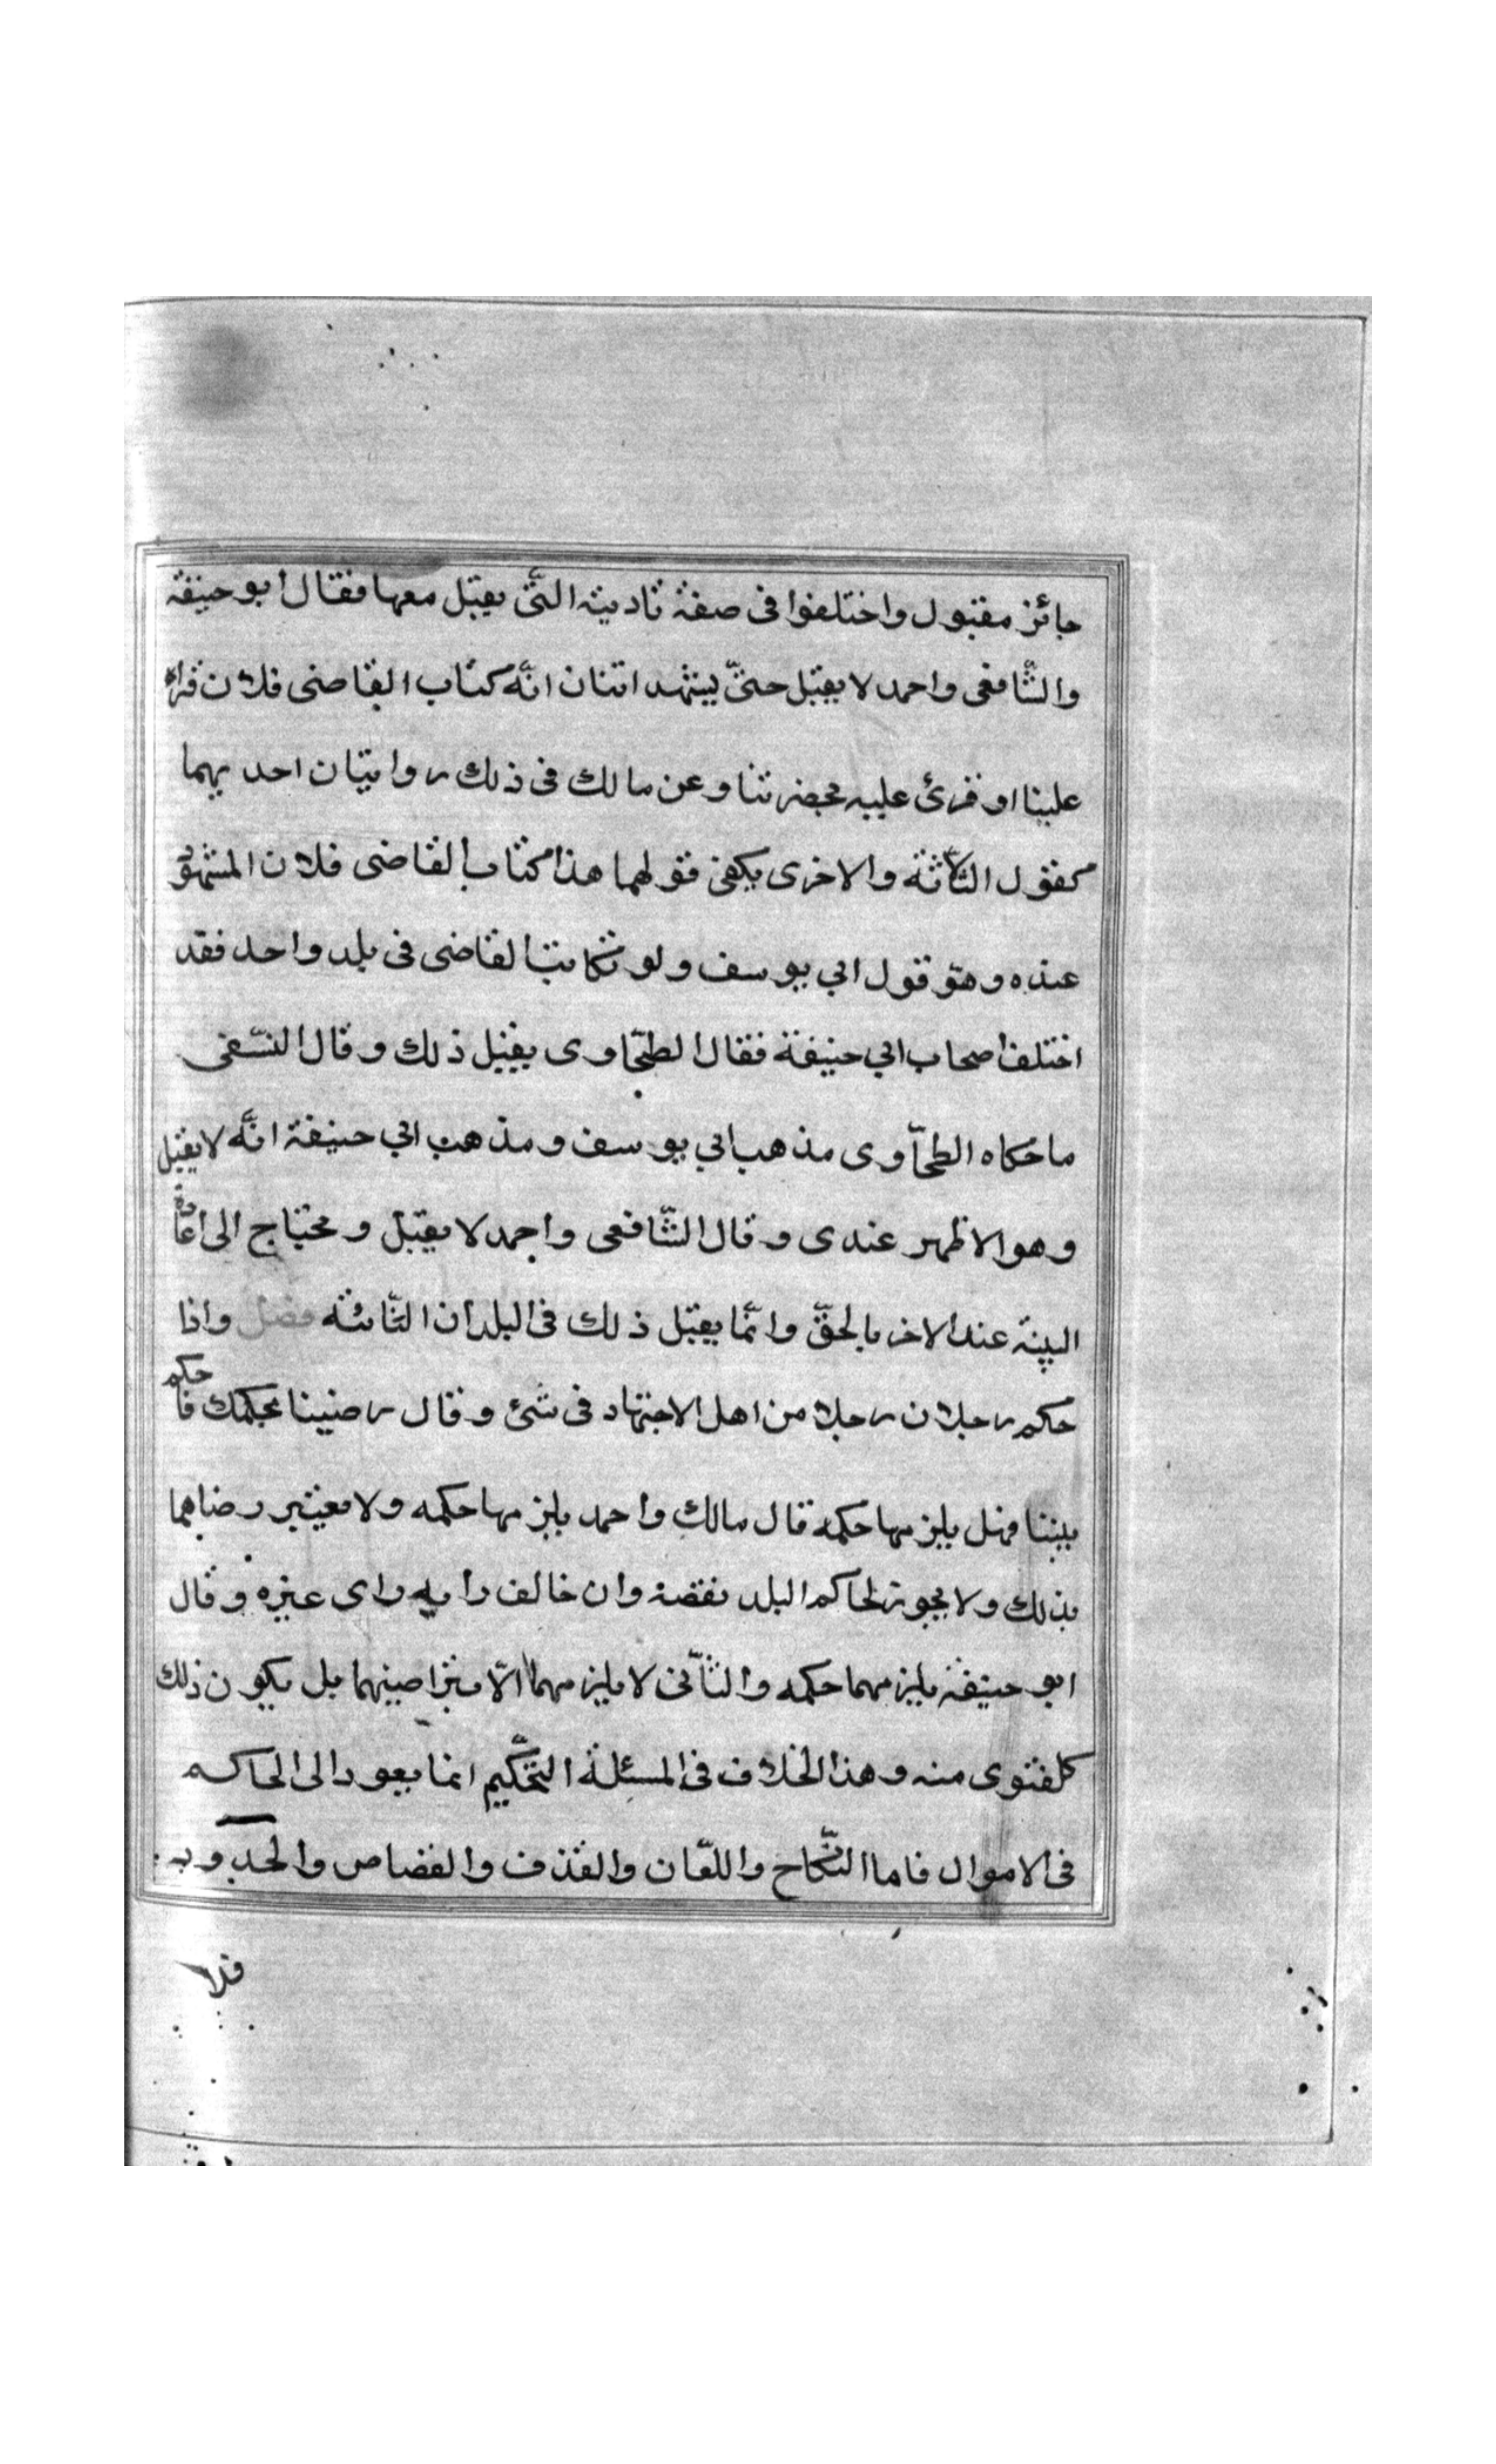 جائز مقبول واختلفوا فى صفة تاديته الّتى يقبل معها فقال ابو حنيفة
والشّافعى واحمد لا يقبل حتّى يشهد اثنان انّه كتاب القاضى فلان قراه
علينا او قرئ عليه بحضرتنا وعن مالك فى ذلك روايتان احديهما
كقول الثّلاثة والاخرى يكفى قولهما هذا كتاب القاضى فلان المشهور
عنده وهو قول ابي يوسف ولو تكاتب القاضى فى بلد واحد فقد
اختلف اصحاب ابي حنيفة فقال الطحّاوى يقبل ذلك وقال النسّفى
ما حكاه الطحّاوى مذهب ابي يوسف ومذهب ابي حنيفة انّه لا يقبل
وهو الاظهر عندى وقال الشّافعى واحمد لا يقبل ويحتاج الى اعادة
البينة عند الاخر بالحقّ وانّما يقبل ذلك فى البلدان النّائية فصل واذا
حكم رجلان رجلا من اهل الاجتهاد فى شئ وقال رضينا بحكمك فاحكم
بيننا فهل يلزمها حكمه قال مالك واحمد يلزمها حكمه ولا يعتبر رضاهما
بذلك ولا يجوز لحاكم البلد نقضه وان خالف رايه راى غيره وقال
ابو حنيفة يلزمهما حكمه والثّانى لا يلزمهما الّا بتراضيهما بل يكون ذلك
كلفتوى منه وهذا الخلاف فى المسئلة التحّكيم انما يعود الى الحاكم
فى الاموال فاما النّكاح واللعّان والقذف والقصاص والحدود
فلا